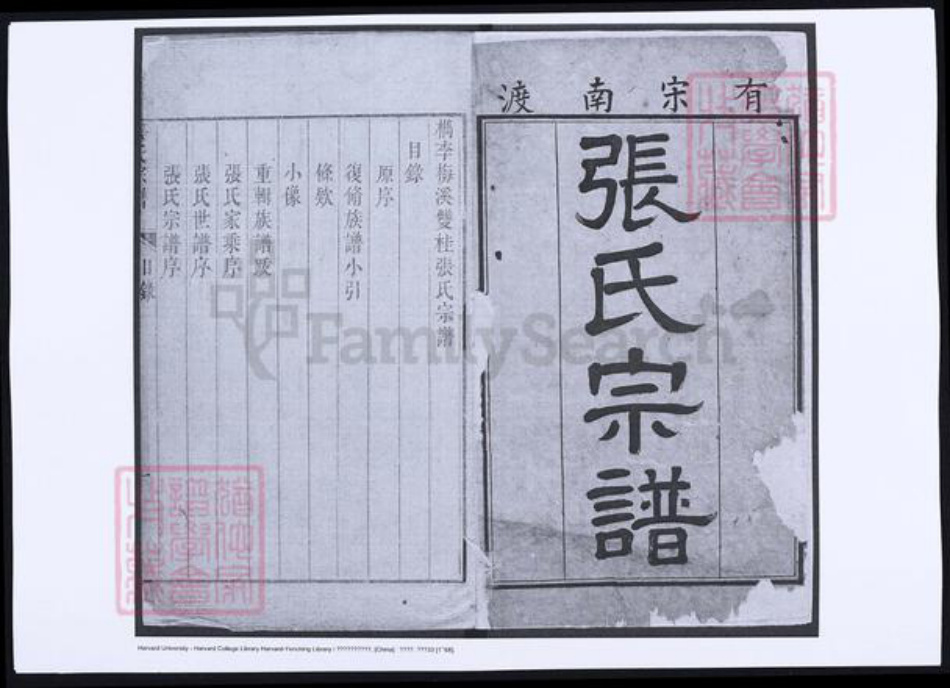 有宋南渡
張氏宗譜
檇李梅溪雙桂張氏宗譜
目錄
原序
復脩族譜小引
條欵
小像
重輯族譜跋
張氏家乘序
張氏世譜序
張氏宗譜序
目錄
FamilySearch
Harvard University - Harvard College Library Harvard-Yenching Library / ??????????. [China]